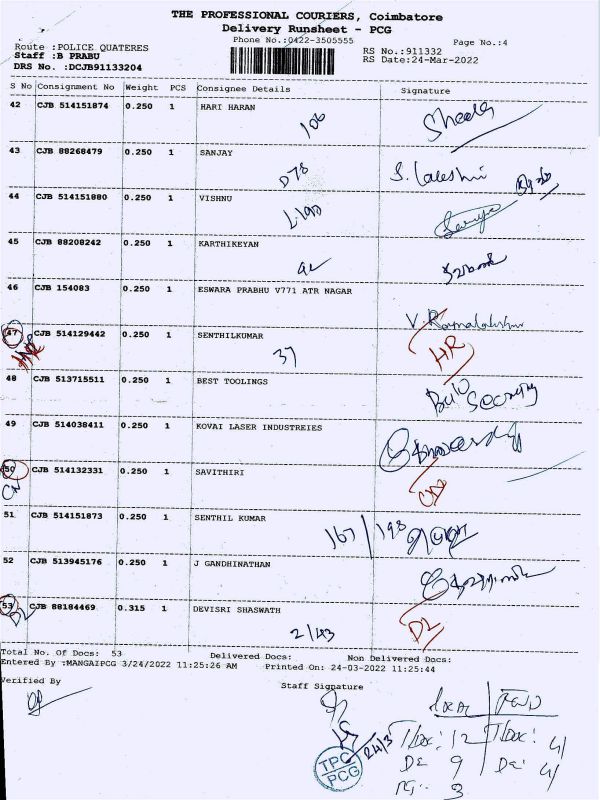 THE PROFESSIONAL COURIERS, Coimbatore
Delivery Runsheet - PCG
Phone No.:0422-3505555 Page No.:4
Route :POLICE QUATERES RS No.:911332
Staff :B PRABU RS Date:24-Mar-2022
DRS No. :DCJB91133204
S No Consignment No Weight PCS Consignee Details Signature
42 CJB 514151874 0.250 1 HARI HARAN
106
43 CJB 88268479 0.250 1 SANJAY
D78 S. Lakshmi
44 CJB 514151880 0.250 1 VISHNU
45 CJB 88208242 0.250 1 KARTHIKEYAN
46 CJB 154083 0.250 1 ESWARA PRABHU V771 ATR NAGAR
V. Ramalakshmi
47 CJB 514129442 0.250 1 SENTHILKUMAR
37 HR
48 CJB 513715511 0.250 1 BEST TOOLINGS
Security
49 CJB 514038411 0.250 1 KOVAI LASER INDUSTREIES
50 CJB 514132331 0.250 1 SAVITHIRI
CN
51 CJB 514151873 0.250 1 SENTHIL KUMAR
167/198
52 CJB 513945176 0.250 1 J GANDHINATHAN
53 CJB 88184469 0.315 1 DEVISRI SHASWATH
DL 2/43 DL
Total No. Of Docs: 53 Delivered Docs: Non Delivered Docs:
Entered By :MANGAIPCG 3/24/2022 11:25:26 AM Printed On: 24-03-2022 11:25:44
Verified By Staff Signature
24/3
T/Doc: 12 T/Doc: 4
DE 9 DE: 4
3
TPC
PCG